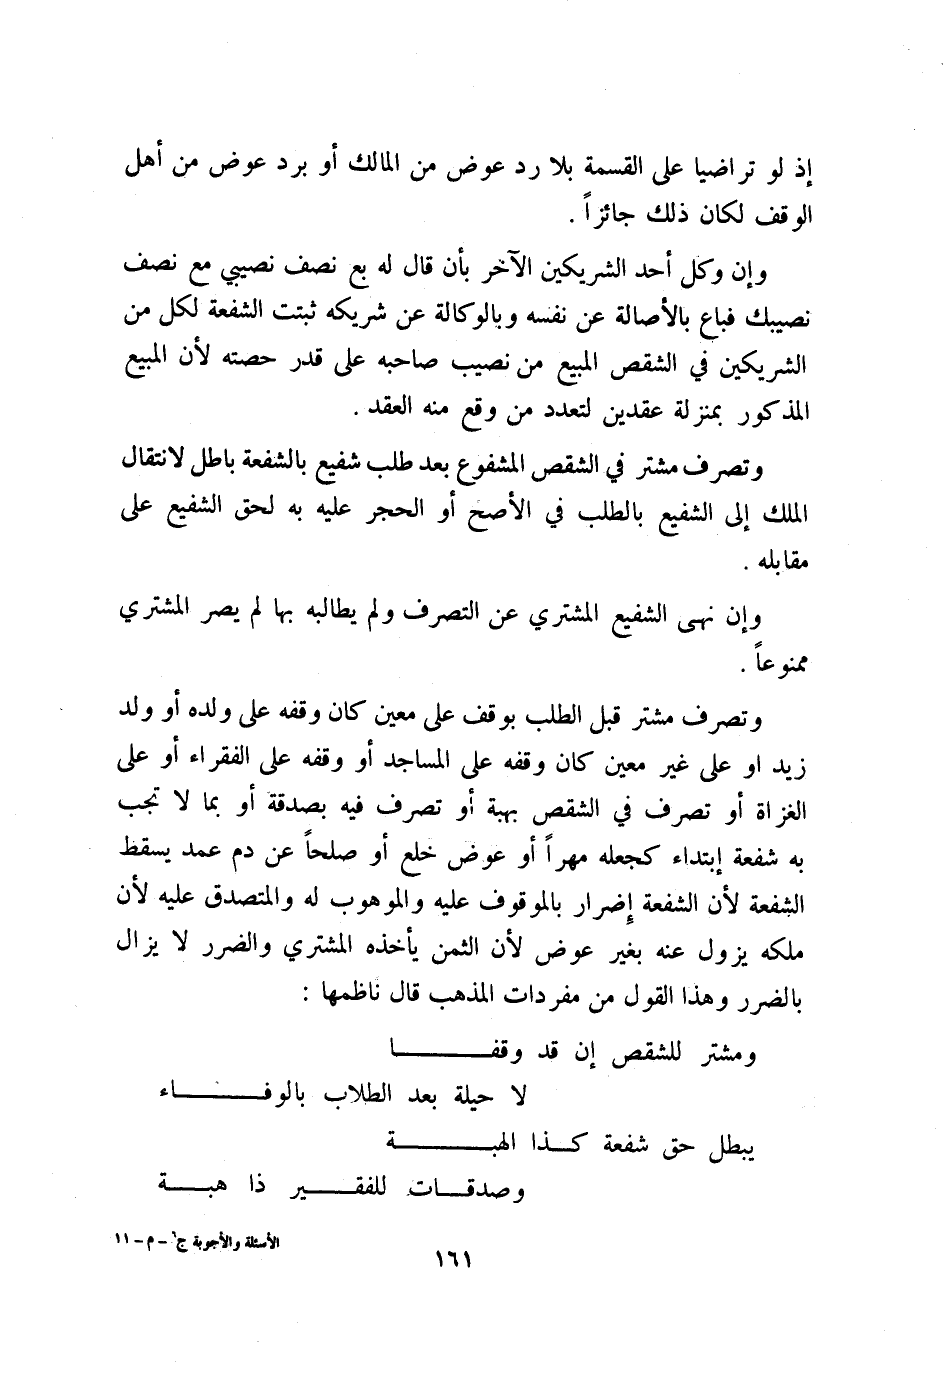 إذ لو تراضيا على القسمة بلا رد عوض من المالك أو برد عوض من أهل
الوقف لكان ذلك جائزاً .
وإن وكل أحد الشريكين الآخر بأن قال له بع نصف نصيبي مع نصف
نصيبك فباع بالأصالة عن نفسه وبالوكالة عن شريكه ثبتت الشفعة لكل من
الشريكين في الشقص المبيع من نصيب صاحبه على قدر حصته لأن المبيع
المذكور بمنزلة عقدين لتعدد من وقع منه العقد .
وتصرف مشتر في الشقص المشفوع بعد طلب شفيع بالشفعة باطل لانتقال
الملك إلى الشفيع بالطلب في الأصح أو الحجر عليه به لحق الشفيع على
مقابله .
وإن نهى الشفيع المشتري عن التصرف ولم يطالبه بها لم يصر المشتري
ممنوعاً .
وتصرف مشتر قبل الطلب بوقف على معين كان وقفه على ولده أو ولد
زيد او على غير معين كان وقفه على المساجد أو وقفه على الفقراء أو على
الغزاة أو تصرف في الشقص بهبة أو تصرف فيه بصدقة أو بما لا تجب
به شفعة إبتداء كجعله مهراً أو عوض خلع أو صلحاً عن دم عمد يسقط
الشفعة لأن الشفعة إضرار بالموقوف عليه والموهوب له والمتصدق عليه لأن
ملكه يزول عنه بغير عوض لأن الثمن يأخذه المشتري والضرر لا يزال
بالضرر وهذا القول من مفردات المذهب قال ناظمها :
ومشتر للشقص إن قد وقفـــــا
لا حيلة بعد الطلاب بالوفـــــاء
يبطل حق شفعة كـــذا الهبـــــة
وصدقـــات للفقـــــير ذا هبـــــة
الأسئلة والأجوبة ج٦ - م - ١١
١٦١